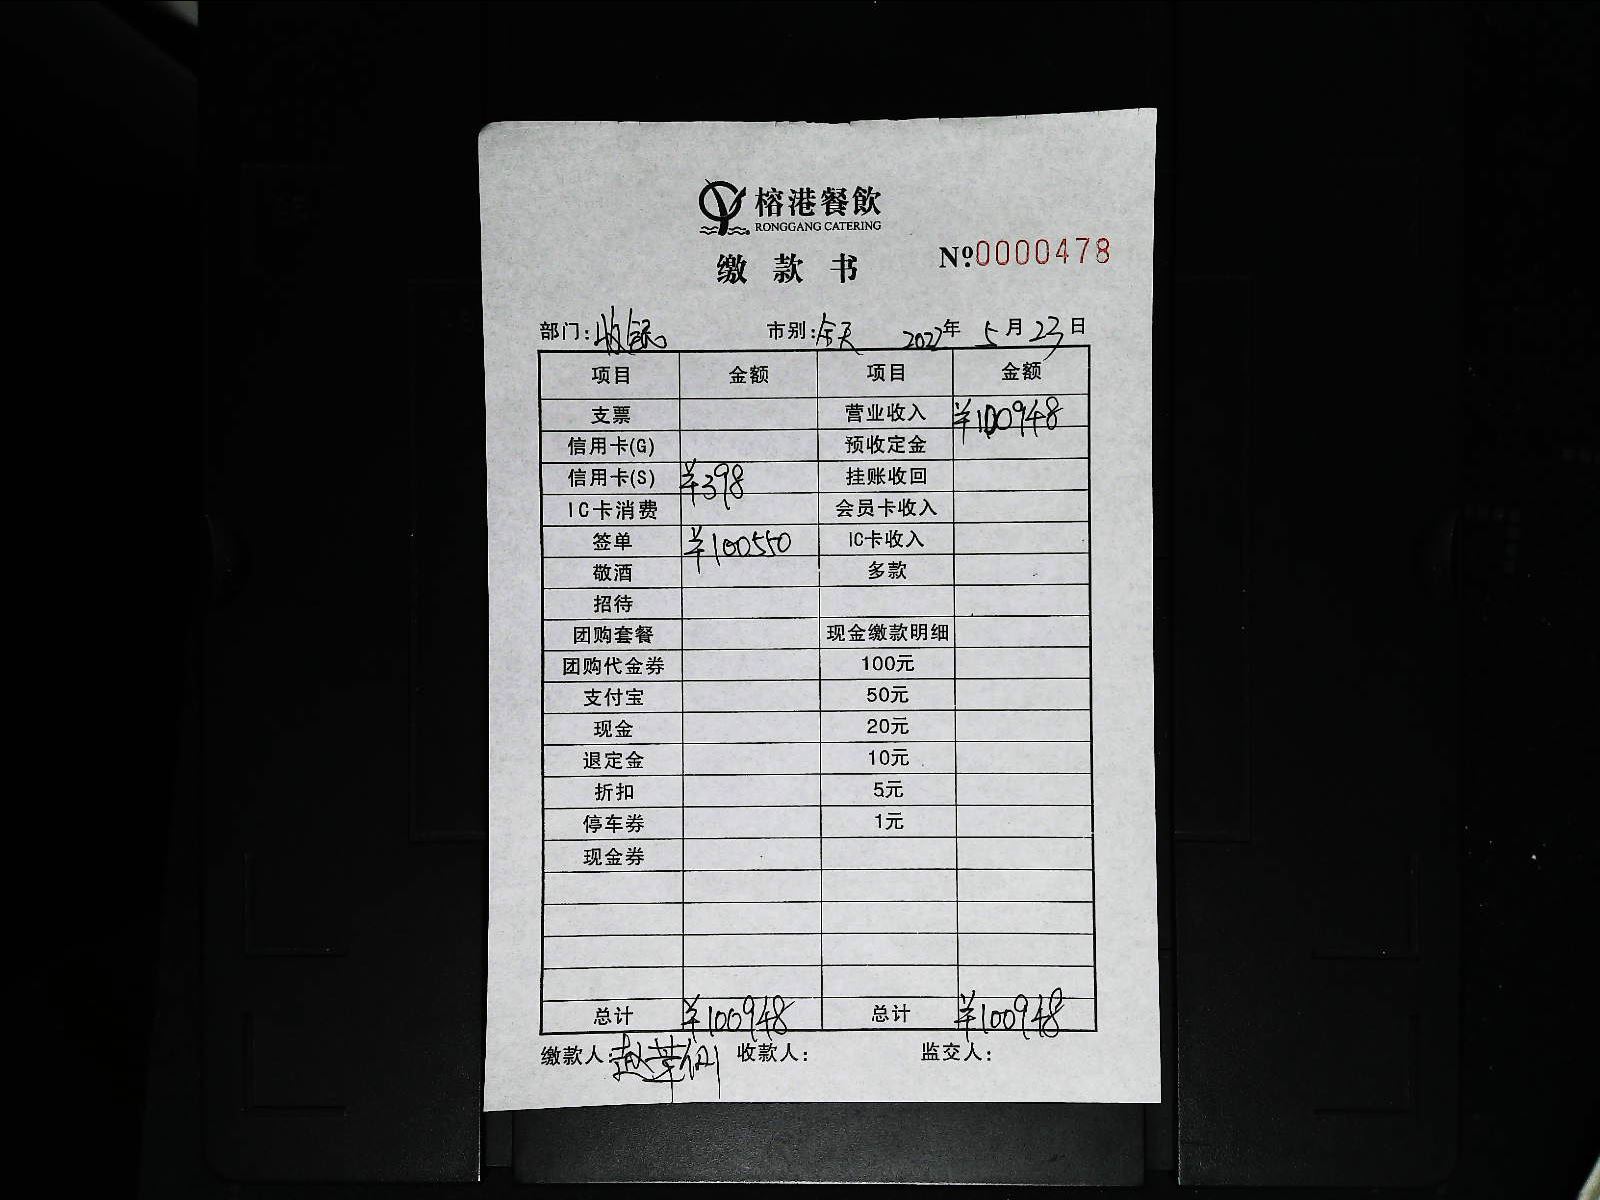 榕港餐飲
RONGGANG CATERING
缴款书 №0000478
部门:收银 市别:全天 2022年5月23日
项目 金额 项目 金额
支票 营业收入 ¥100948
信用卡(G) 预收定金
信用卡(S) ¥398 挂账收回
IC卡消费 会员卡收入
签单 ¥100550 IC卡收入
敬酒 多款
招待
团购套餐 现金缴款明细
团购代金券 100元
支付宝 50元
现金 20元
退定金 10元
折扣 5元
停车券 1元
现金券
总计 ¥100948 总计 ¥100948
缴款人: 收款人: 监交人: